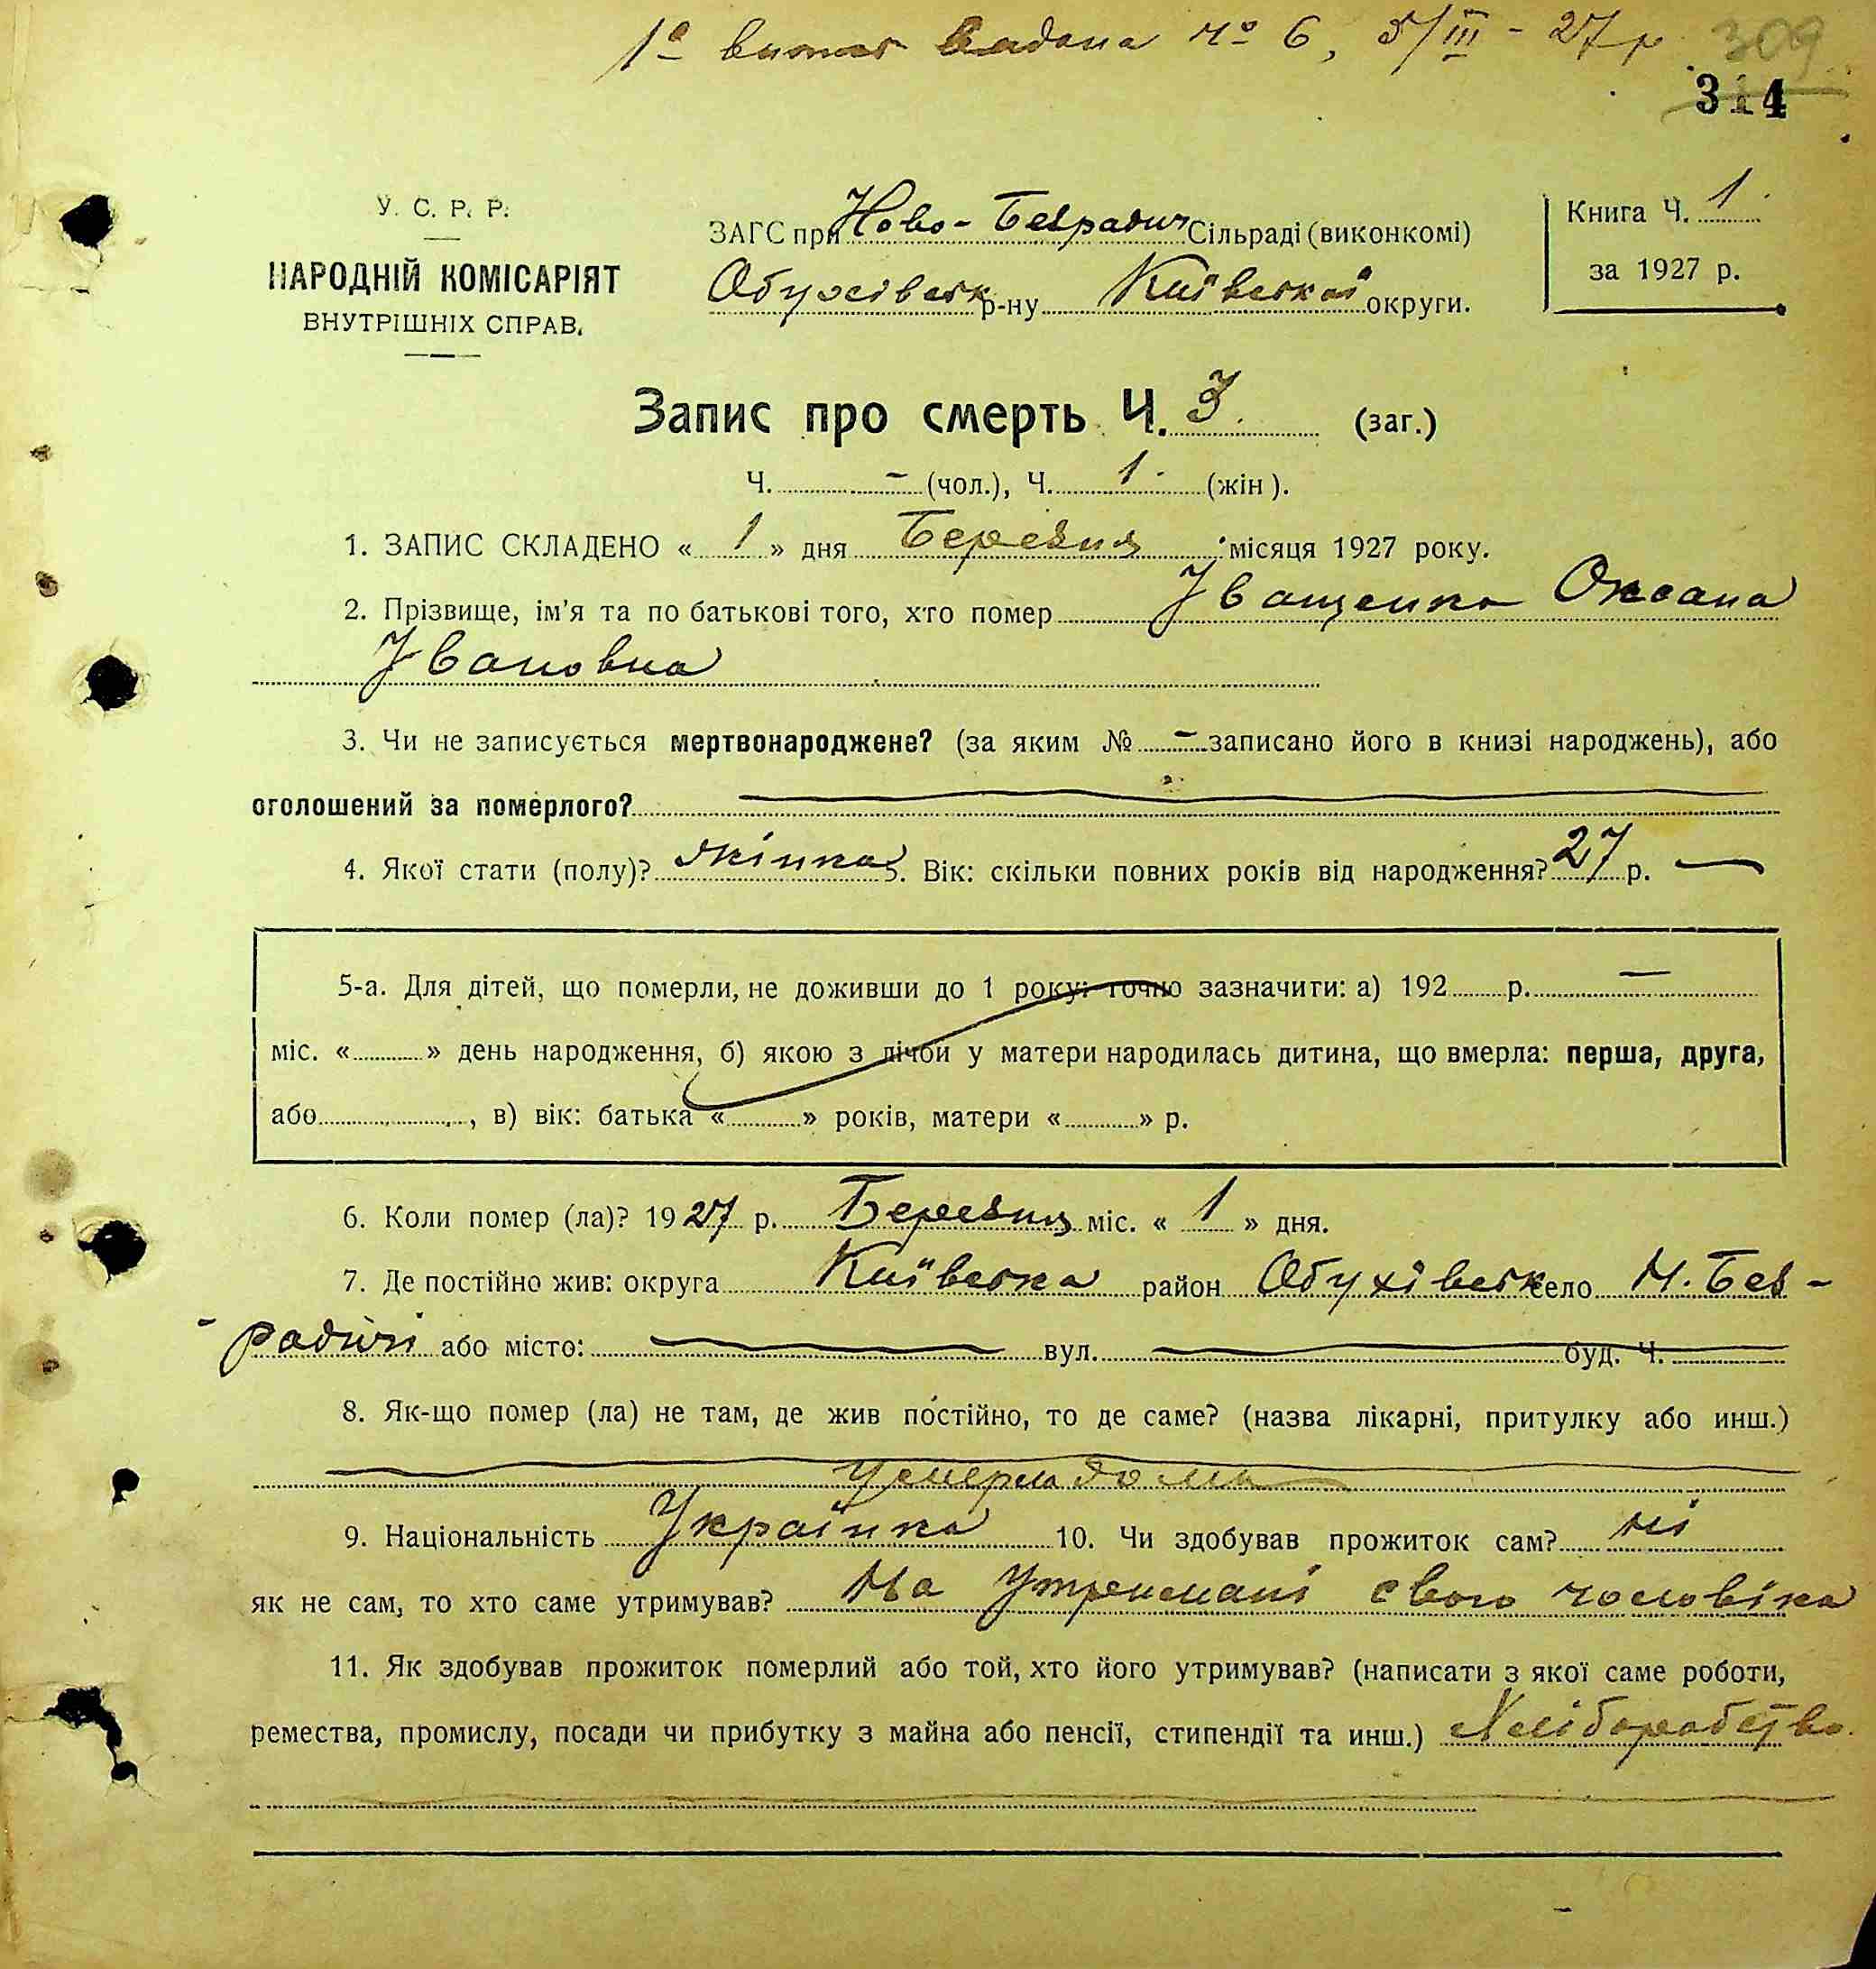 1а витяг видана № 6, 5/III - 27 р.
309
314
У. С. Р. Р.
НАРОДНІЙ КОМІСАРІЯТ
ВНУТРІШНІХ СПРАВ.
ЗАГС при Ново-Безрадич Сільраді (виконкомі)
Обухівськ р-ну Київської округи.
Книга Ч. 1
за 1927 р.
Запис про смерть Ч. 3 (заг.)
Ч. - (чол.), Ч. 1 (жін).
1. ЗАПИС СКЛАДЕНО « 1 » дня Березня місяця 1927 року.
2. Прізвище, ім'я та по батькові того, хто помер Іващенко Оксана
Івановна
3. Чи не записується мертвонароджене? (за яким № - записано його в книзі народжень), або
оголошений за померлого?
4. Якої стати (полу)? жінка 5. Вік: скільки повних років від народження? 27 р. —
5-а. Для дітей, що померли, не доживши до 1 року: точно зазначити: а) 192 р. —
міс. « » день народження, б) якою з лічби у матери народилась дитина, що вмерла: перша, друга,
або , в) вік: батька « » років, матери « » р.
6. Коли помер (ла)? 1927 р. Березня міс. « 1 » дня.
7. Де постійно жив: округа Київська район Обухівськ село Н. Без-
-радичі або місто: вул. буд. Ч.
8. Як-що помер (ла) не там, де жив постійно, то де саме? (назва лікарні, притулку або инш.)
Умерла дома
9. Національність Українка 10. Чи здобував прожиток сам? ні
як не сам, то хто саме утримував? На утримані свого чоловіка
11. Як здобував прожиток померлий або той, хто його утримував? (написати з якої саме роботи,
ремества, промислу, посади чи прибутку з майна або пенсії, стипендії та инш.) Хліборобство.